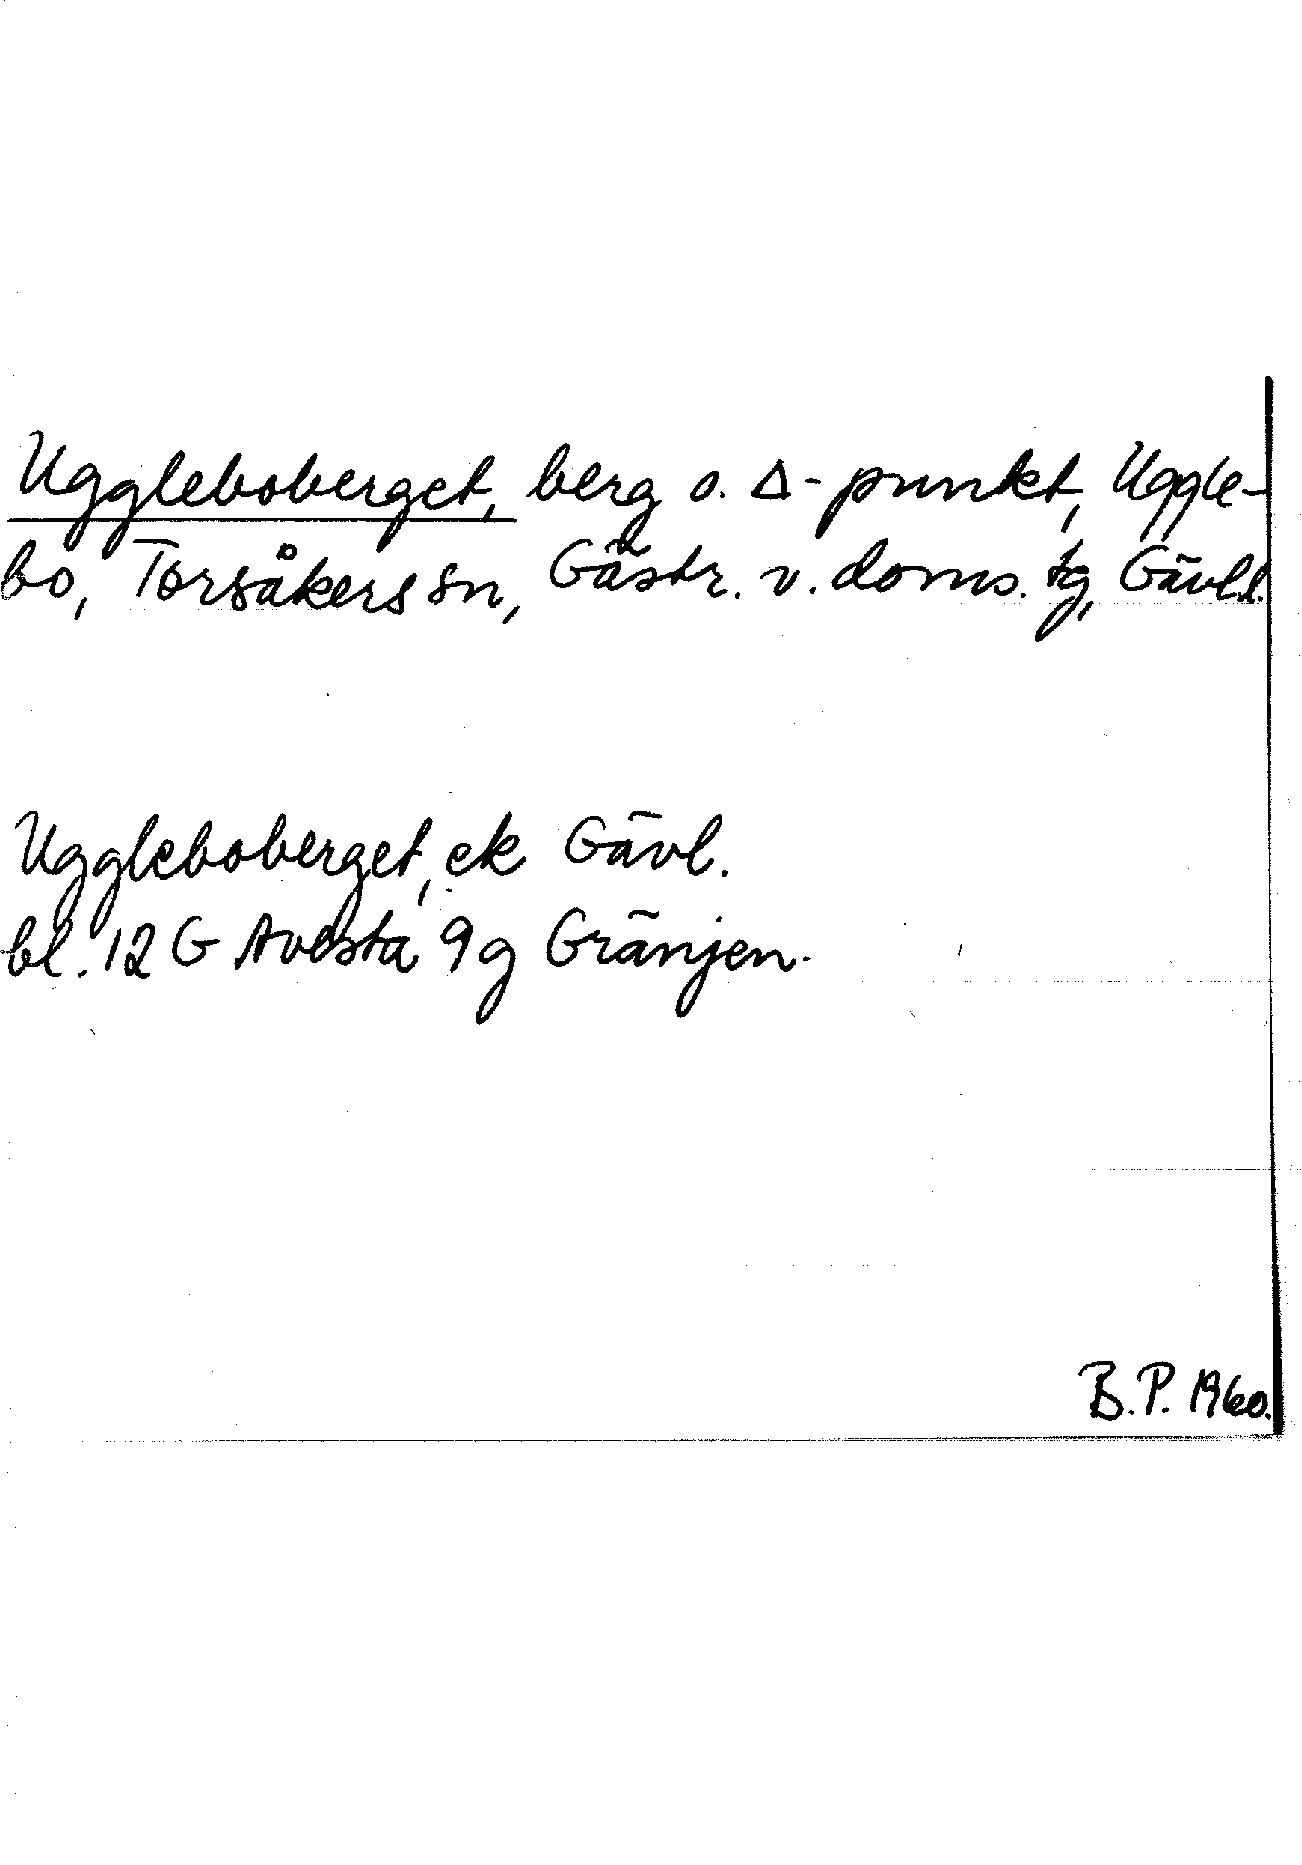 Uggleboberget, berg o. Δ-punkt, Uggle-
bo, Torsåkers sn, Gästr. v. doms. tg, Gävl.l.
Uggleboberget, ek Gävl.
bl. 12 G Avesta 9g Gränjen.
B.P. 1960.